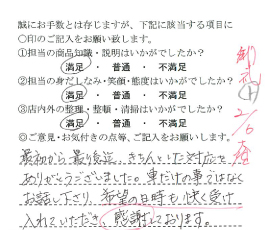 誠にお手数とは存じますが、下記に該当する項目に
〇印のご記入をお願い致します。
①担当の商品知識・説明はいかがでしたか?
満足 ・ 普通 ・ 不満足
②担当の身だしなみ・笑顔・態度はいかがでしたか?
満足 ・ 普通 ・ 不満足
③店内外の整理・整頓・清掃はいかがでしたか?
満足 ・ 普通 ・ 不満足
◎ご意見・お気付きの点等、ご記入をお願いします。
最初から最後迄、きちんとした対応で
ありがとうございました。車だけの事ではなく
お話し下さり、希望の日時も快く受け
入れていただき、感謝しております。
2/6